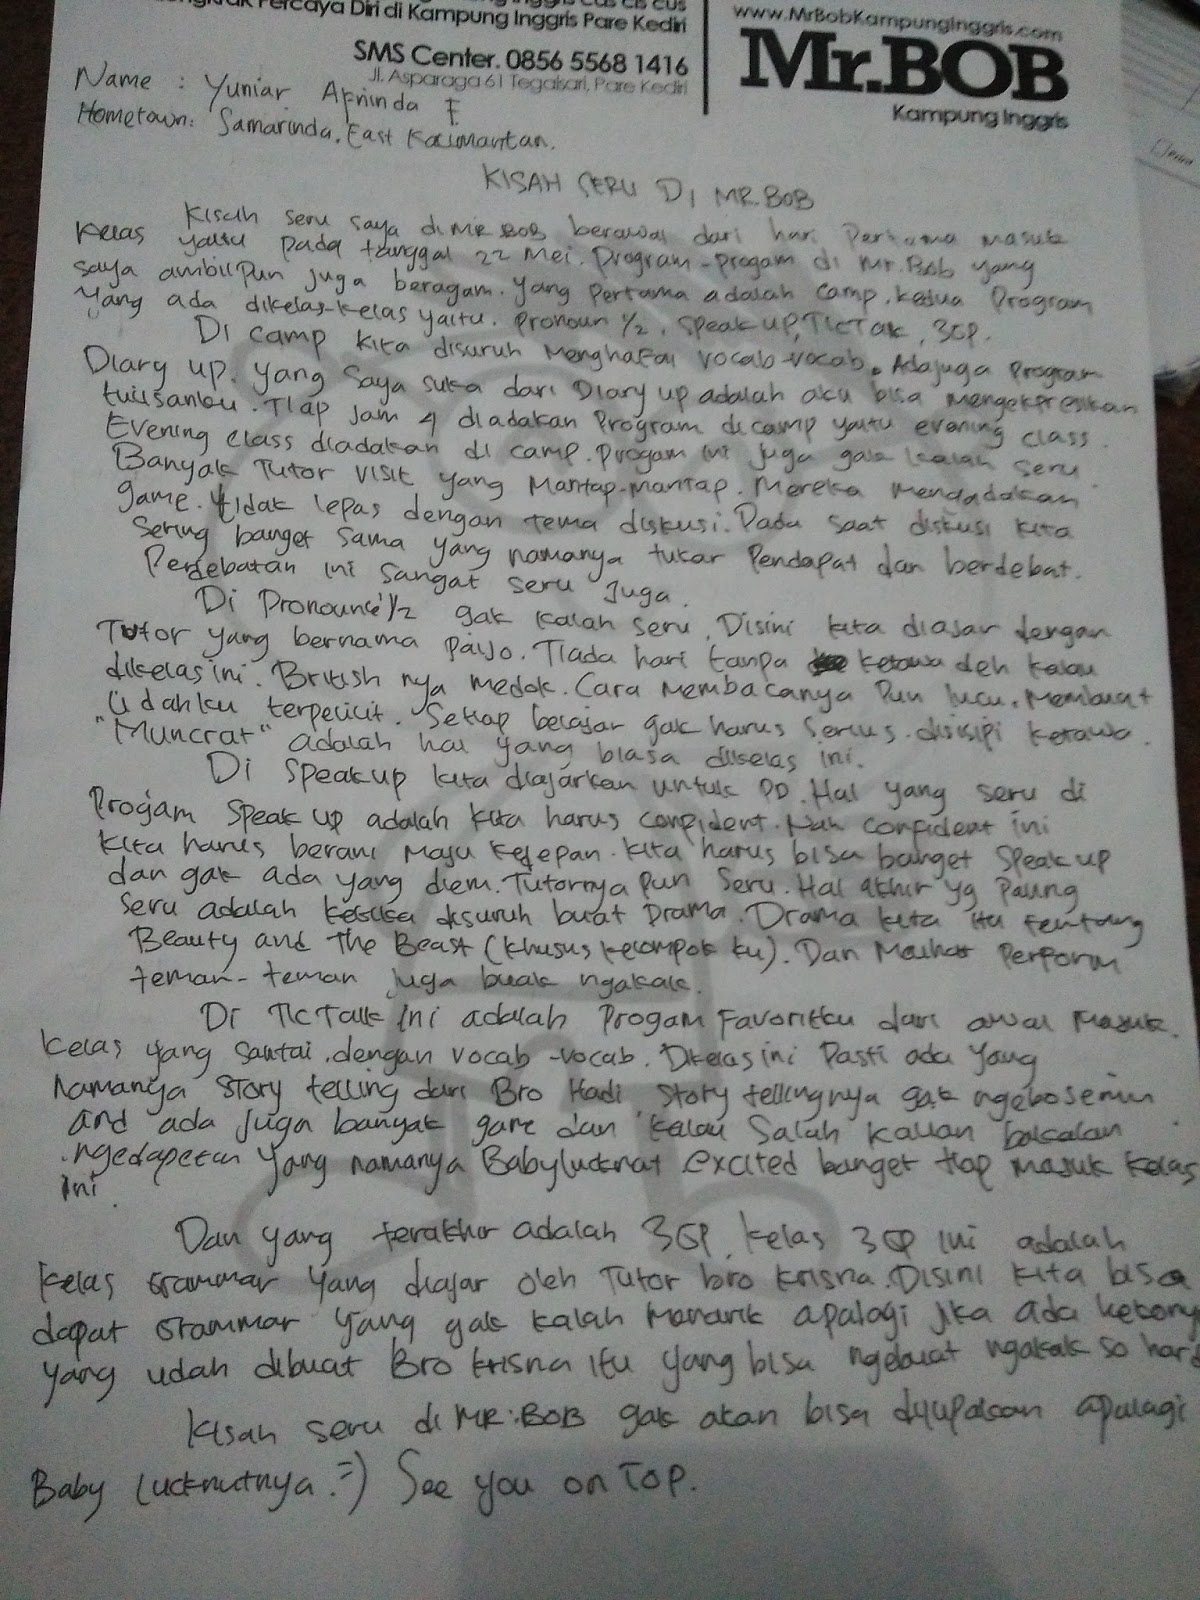 Percaya Diri di Kampung Inggris Pare Kediri
SMS Center. 0856 5568 1416
Jl. Asparaga 61 Tegalsari, Pare Kediri
www.MrBobKampungInggris.com
Mr.BOB
Kampung Inggris
Name : Yuniar Aprinda F
Hometown: Samarinda, East Kalimantan.
KISAH SERU DI MR.BOB
Kisah seru saya di MR BOB berawal dari hari Pertama masuk
kelas yaitu pada tanggal 22 Mei. Program-progam di Mr.Bob yang
saya ambilpun juga beragam. Yang pertama adalah camp. kedua Program
yang ada dikelas-kelas yaitu. pronoun 1/2, speak up, TicTalk, 3GP.
Di camp kita disuruh menghafal vocab-vocab. Adajuga program
Diary up. yang saya suka dari Diary up adalah aku bisa mengekpresikan
tulisanku. Tiap jam 4 diadakan Program di camp yaitu evening class.
Evening class diadakan di camp. Progam ini juga gak kalah seru.
Banyak Tutor visit yang Mantap-mantap. Mereka mengadakan
game. tidak lepas dengan tema diskusi. Pada saat diskusi kita
sering banget sama yang namanya tukar Pendapat dan berdebat.
Perdebatan ini sangat seru juga.
Di Pronounce 1/2 gak kalah seru. Disini kita diajar dengan
Tutor yang bernama Paijo. Tiada hari tanpa ketawa deh kalau
dikelas ini. British nya medok. Cara membacanya pun lucu. Membuat
lidahku terpelicit. Setiap belajar gak harus serius. disisipi ketawa.
"Muncrat" adalah hal yang biasa dikelas ini.
Di Speakup kita diajarkan untuk PD. Hal yang seru di
Progam Speak up adalah kita harus confident. Nah confident ini
kita harus berani maju kedepan. kita harus bisa banget speak up
dan gak ada yang diem. Tutornya pun seru. Hal akhir yg paling
seru adalah ketika disuruh buat Drama. Drama kita itu tentang
Beauty and The Beast (khusus kelompok ku). Dan Melihat Perform
teman-teman juga buak ngakak.
Di TicTalk ini adalah Progam Favoritku dari awal masuk.
Kelas yang santai. dengan vocab-vocab. Dikelas ini Pasti ada yang
namanya Story telling dari Bro Hadi Story tellingnya gak ngebosenin
and ada juga banyak game dan kalau salah kalian bakalan
ngedapetin yang namanya Babylucknat. excited banget tiap masuk kelas
ini.
Dan yang terakhir adalah 3GP. kelas 3GP ini adalah
kelas Grammar yang diajar oleh Tutor bro krisna. Disini kita bisa
dapat Grammar yang gak kalah menarik apalagi jika ada
yang udah dibuat Bro krisna itu yang bisa ngebuat ngakak so hard
Kisah seru di MR.BOB gak akan bisa dilupakan apalagi
Baby lucknutnya :=) See you on Top.